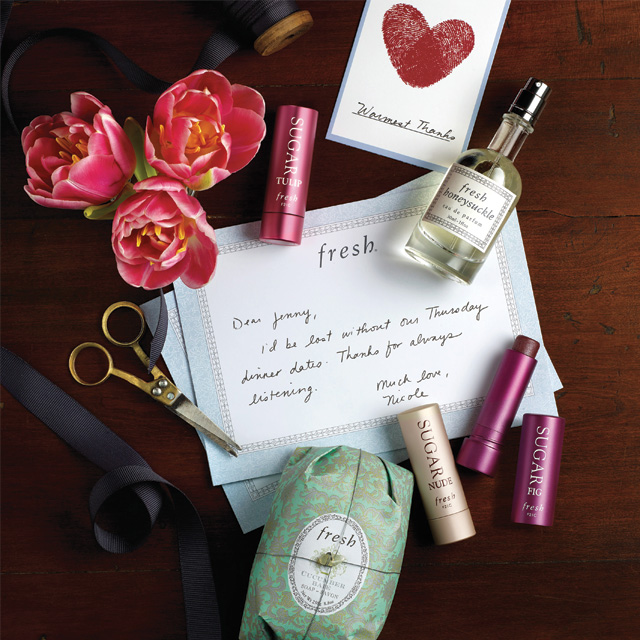 Warmest Thanks
SUGAR
TULIP
fresh
fresh
honeysuckle
eau de parfum
fresh
Dear Jenny,
i'd be lost without our Thursday
dinner dates. Thanks for always
listening.
Much love,
Nicole
SUGAR
NUDE
fresh
SUGAR
FIG
fresh
fresh
CUCUMBER
BAIE
SOAP • SAVON